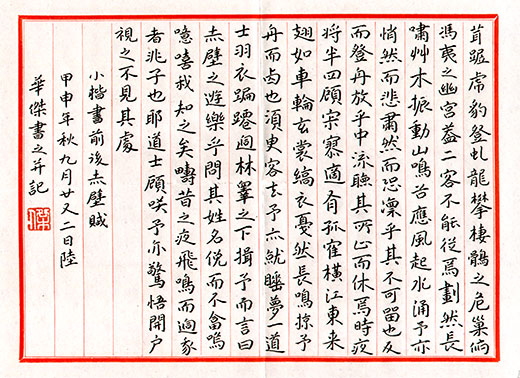 茸踞虎豹登虬龍攀棲鶻之危巢俯
馮夷之幽宮蓋二客不能從焉劃然長
嘯艸木振動山鳴谷應風起水涌予亦
悄然而悲肅然而恐凜乎其不可留也反
而登舟放乎中流聽其所止而休焉時夜
將半四顧寂寥適有孤隺橫江東來
翅如車輪玄裳縞衣戛然長鳴掠予
舟而西也須臾客去予亦就睡夢一道
士羽衣蹁躚過林睪之下揖予而言曰
赤壁之遊樂乎問其姓名俛而不畣嗚
噫嘻我知之矣疇昔之夜飛鳴而過我
者非子也耶道士顧咲予亦驚悟開戶
視之不見其處
小楷書前後赤壁賦
甲申年秋九月廿又二日陸
華傑書之并記